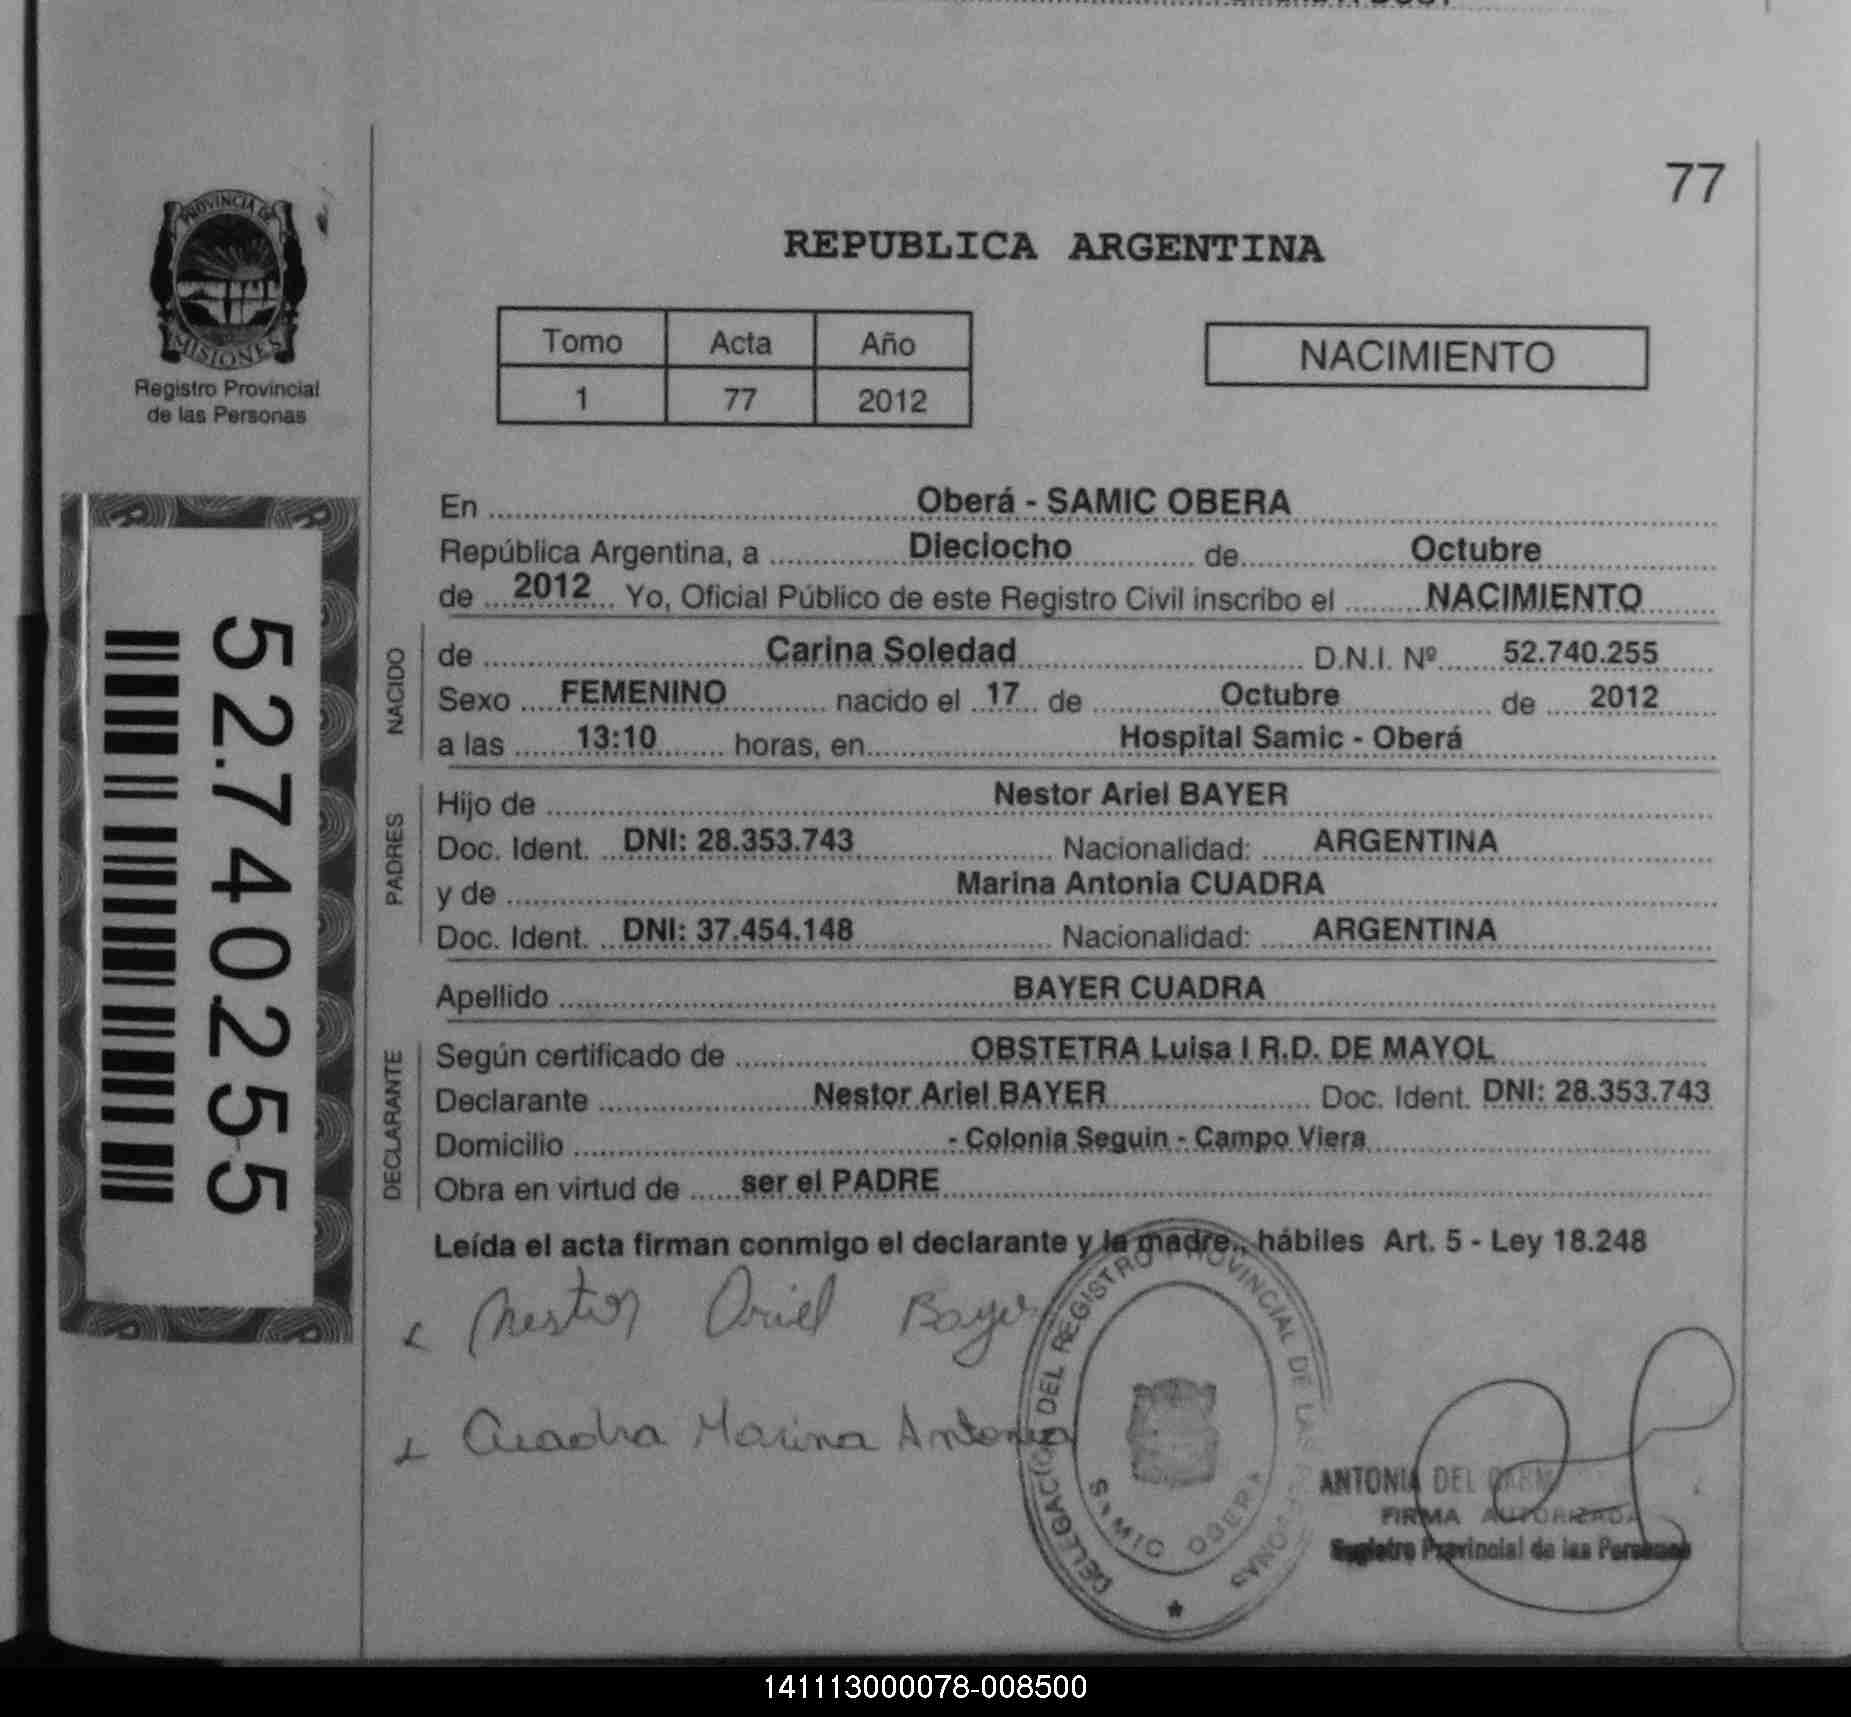 77
PROVINCIA DE
MISIONES
Registro Provincial
de las Personas
REPUBLICA ARGENTINA
Tomo Acta Año
1 77 2012
NACIMIENTO
52.740.255
En Oberá - SAMIC OBERA
República Argentina, a Dieciocho de Octubre
de 2012 Yo, Oficial Público de este Registro Civil inscribo el NACIMIENTO
NACIDO
de Carina Soledad D.N.I. Nº 52.740.255
Sexo FEMENINO nacido el 17 de Octubre de 2012
a las 13:10 horas, en Hospital Samic - Oberá
PADRES
Hijo de Nestor Ariel BAYER
Doc. Ident. DNI: 28.353.743 Nacionalidad: ARGENTINA
y de Marina Antonia CUADRA
Doc. Ident. DNI: 37.454.148 Nacionalidad: ARGENTINA
Apellido BAYER CUADRA
DECLARANTE
Según certificado de OBSTETRA Luisa I R.D. DE MAYOL
Declarante Nestor Ariel BAYER Doc. Ident. DNI: 28.353.743
Domicilio - Colonia Seguin - Campo Viera
Obra en virtud de ser el PADRE
Leída el acta firman conmigo el declarante y la madre., hábiles Art. 5 - Ley 18.248
Nestor Ariel Bayer
Cuadra Marina Antonia
DELEGACION DEL REGISTRO PROVINCIAL DE LAS PERSONAS
SAMIC OBERA
ANTONIA DEL
FIRMA AUTORIZADA
Registro Provincial de las Personas
141113000078-008500